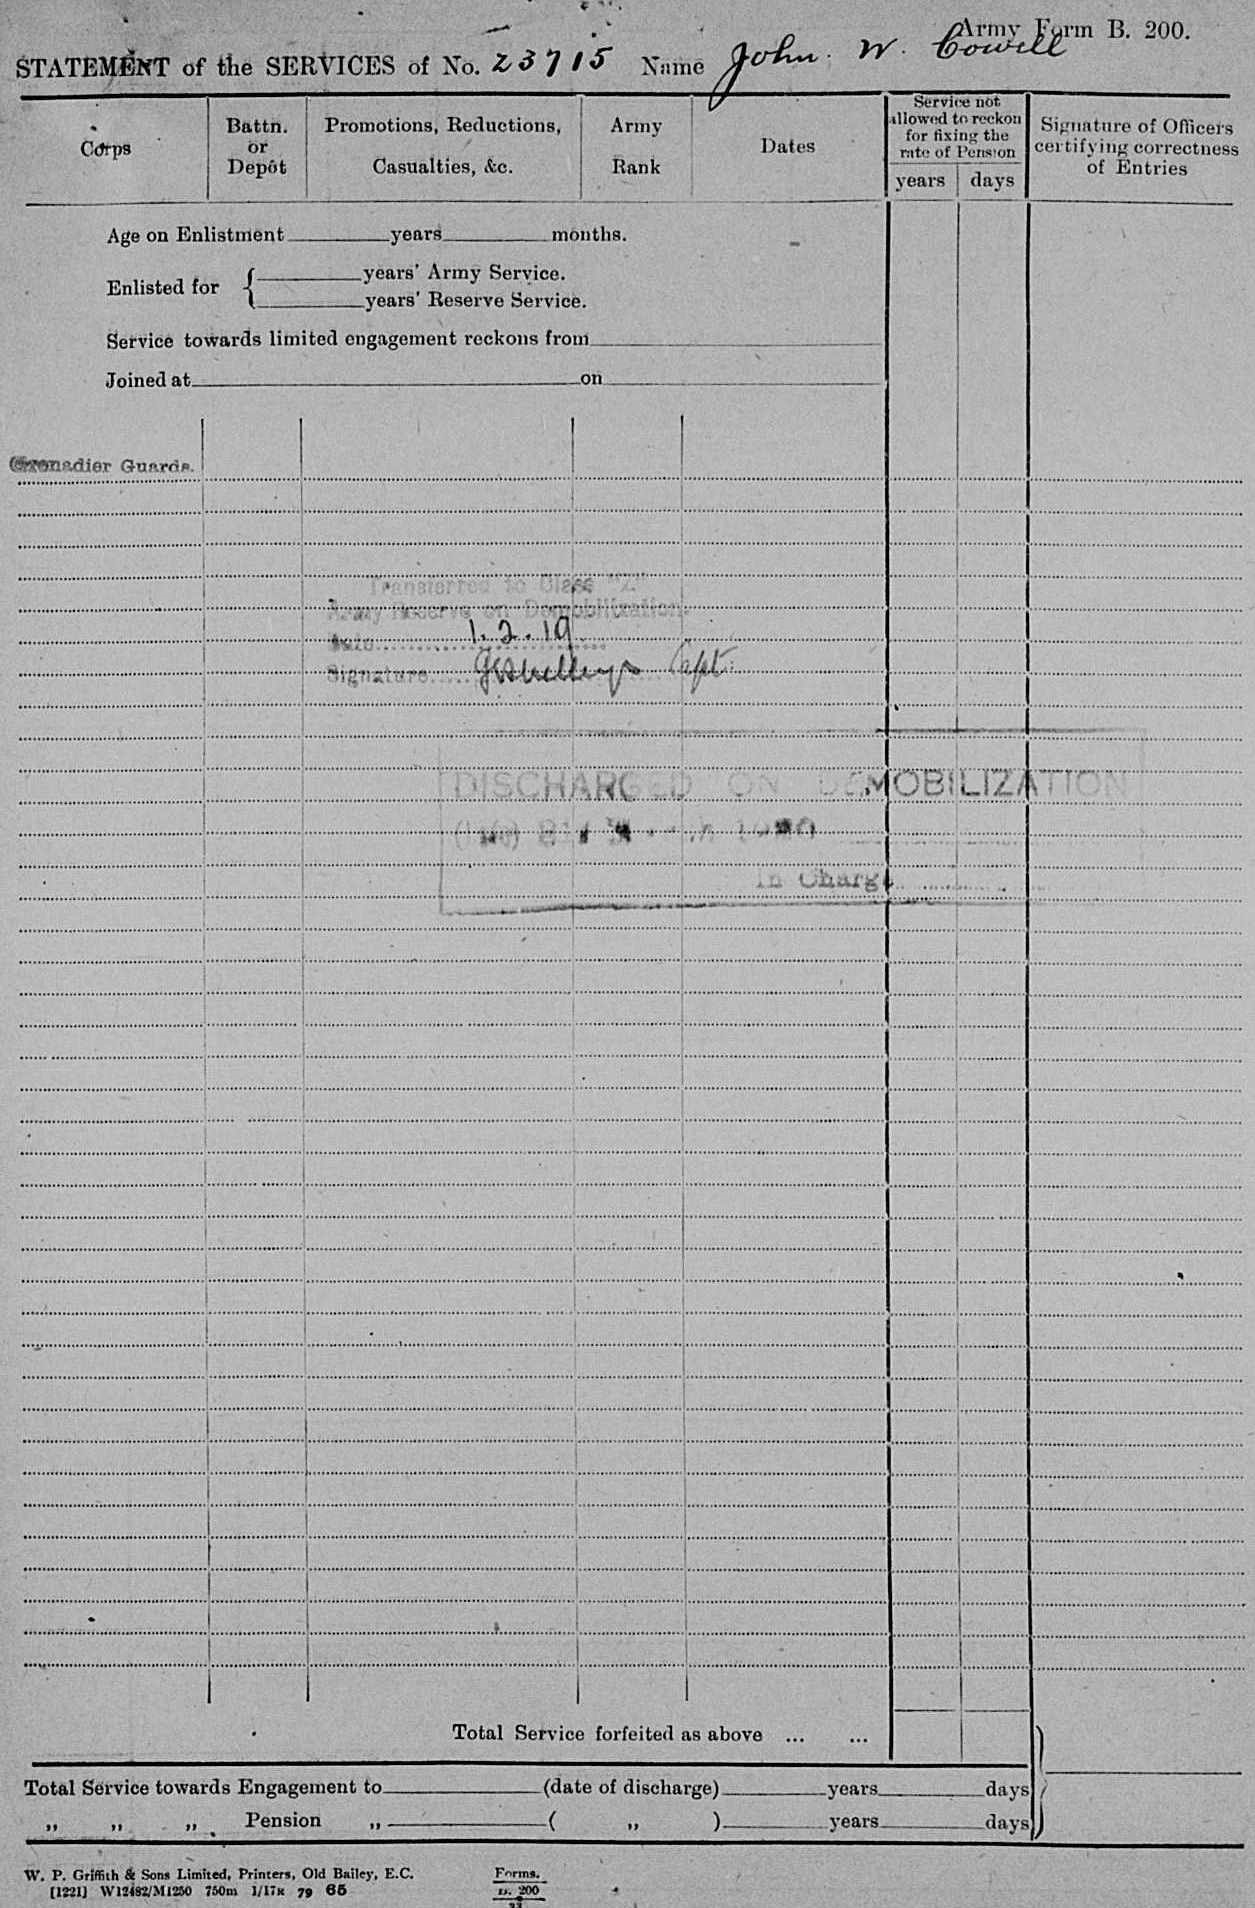 Army Form B. 200.
STATEMENT of the SERVICES of No. 23715 Name John. W. Cowell
Corps
Battn.
or
Depôt
Promotions, Reductions,
Casualties, &c.
Army
Rank
Dates
Service not
allowed to reckon
for fixing the
rate of Pension
years days
Signature of Officers
certifying correctness
of Entries
Age on Enlistment years months.
Enlisted for { years' Army Service.
years' Reserve Service.
Service towards limited engagement reckons from
Joined at on
Grenadier Guards.
Transferred to Class "Z"
Army Reserve on Demobilization.
Date 1.2.19.
Signature Capt.
DISCHARGED ON DEMOBILIZATION
In Charge
Total Service forfeited as above ... ...
Total Service towards Engagement to (date of discharge) years days
„ „ „ Pension „ ( „ ) years days
W. P. Griffith & Sons Limited, Printers, Old Bailey, E.C.
[1221] W12482/M1250 750m 1/17R 79 65
Forms.
B. 200